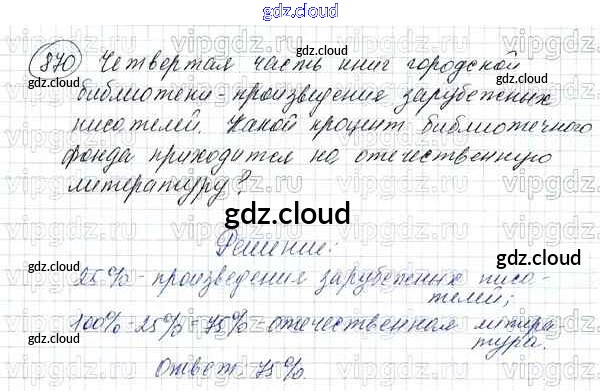 gdz.cloud
870 Четвертая часть книг городской
библиотеки - произведения зарубежных
писателей. Какой процент библиотечного
фонда приходится на отечественную
литературу?
gdz.cloud
Решение:
25% - произведения зарубежных писа-
телей;
100% - 25% = 75% отечественная литира
тура.
Ответ: 75%
gdz.cloud